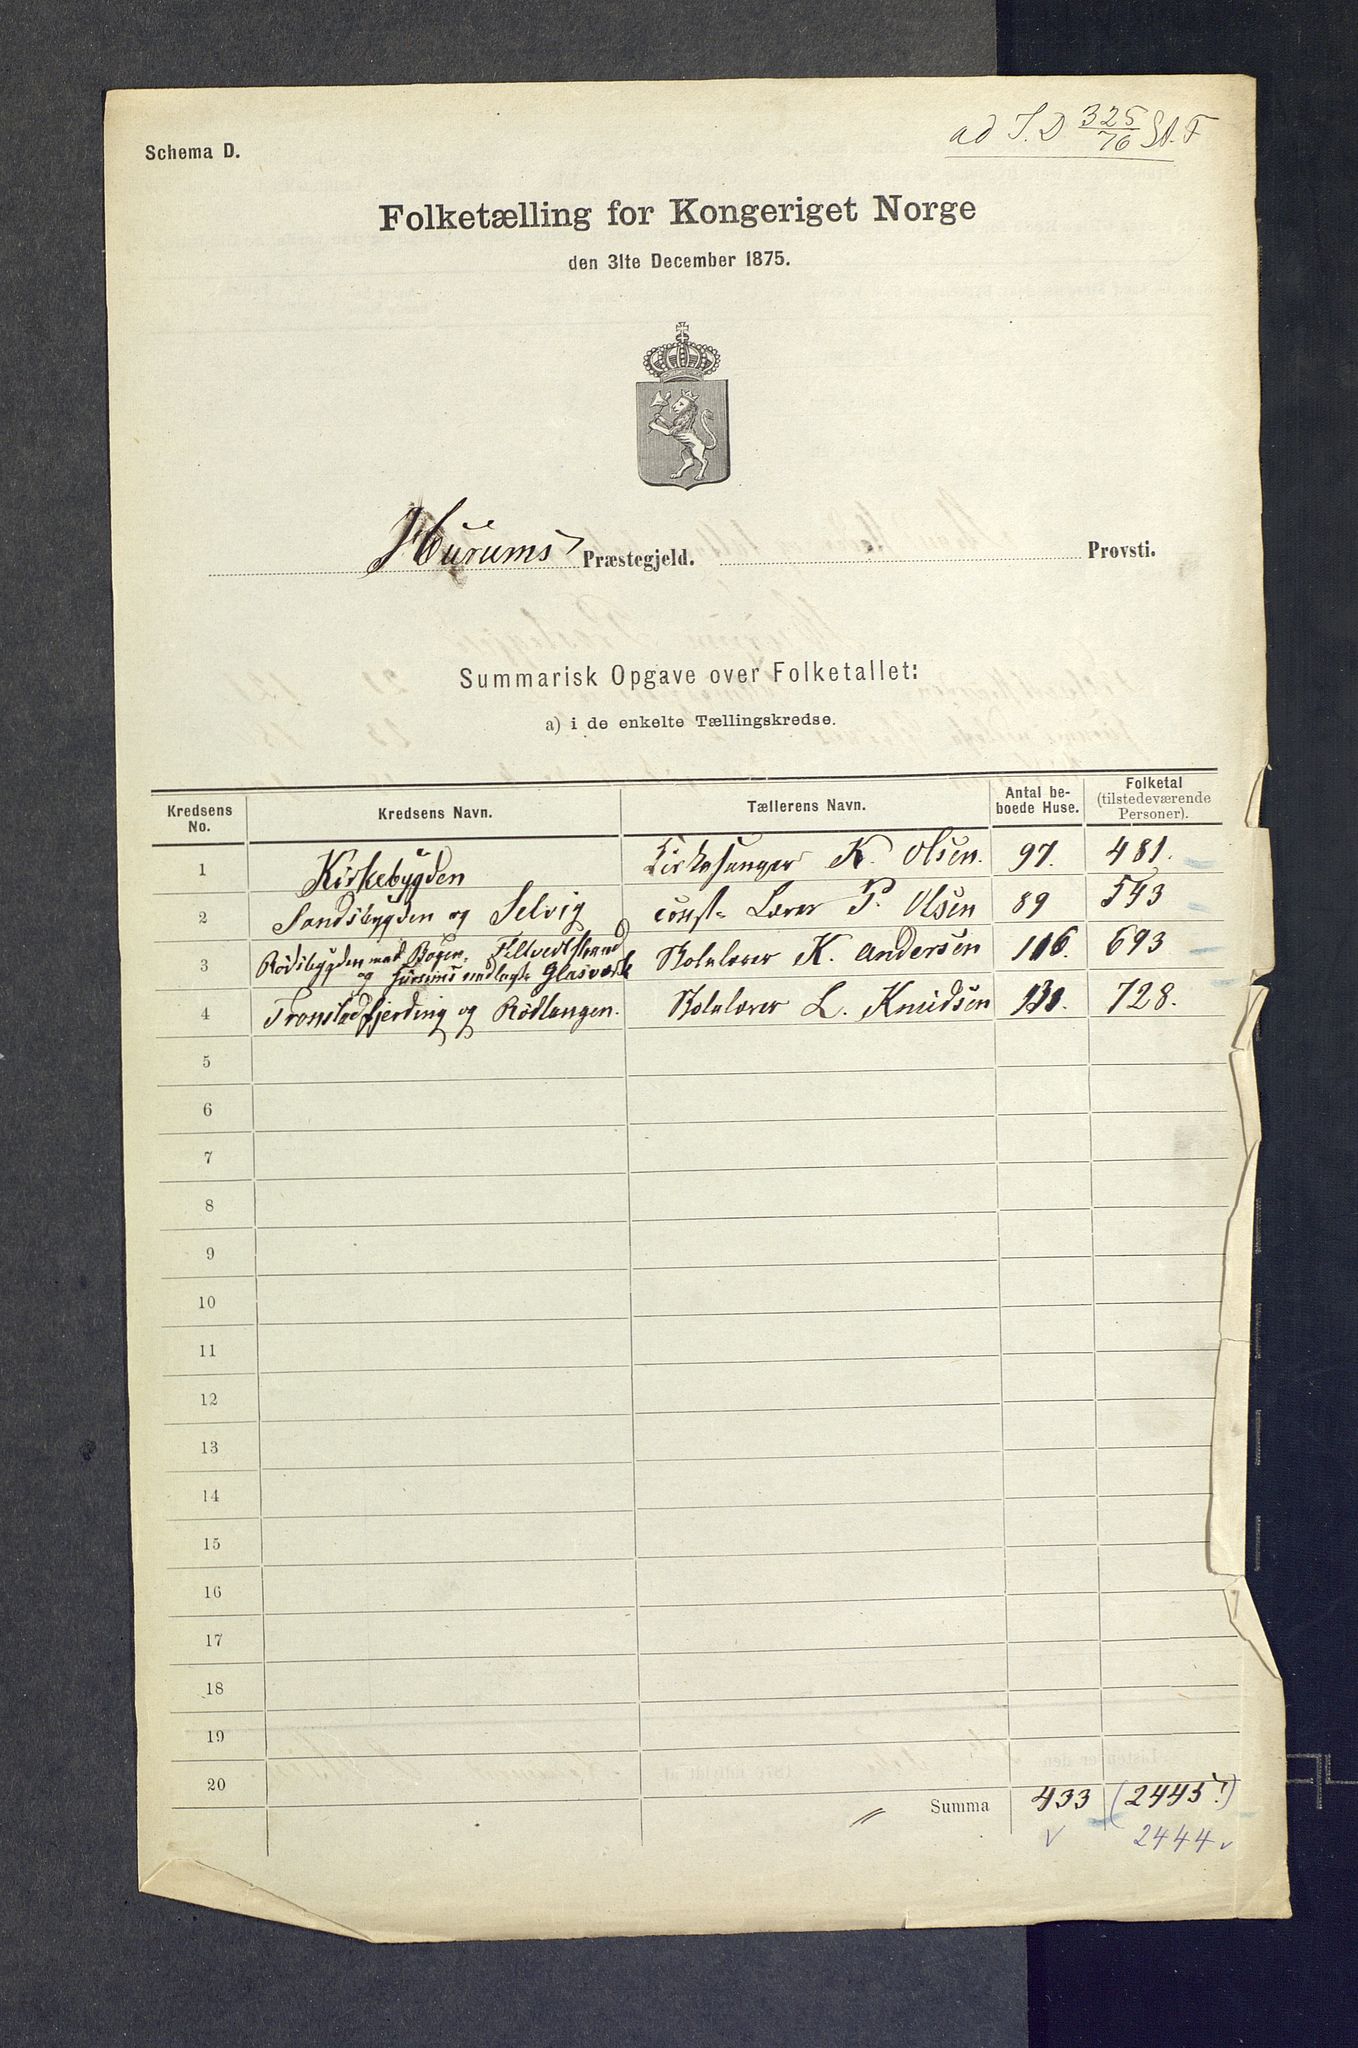 ad J.D 325/76 St. F
Schema D.
Folketælling for Kongeriget Norge
den 31te December 1875.
Hurums Præstegjeld. Provsti.
Summarisk Opgave over Folketallet:
a) i de enkelte Tællingskredse.
Kredsens No. Kredsens Navn. Tællerens Navn. Antal beboede Huse. Folketal (tilstedeværende Personer).
1 Kirkebygden Kirkesanger K. Olsen. 97. 481.
2 Sandsbygden og Selvig const. Lærer P. Olsen 89 543
3 Rödsbygden med Bogen, Filtvedtstrand
og Hurums nedlagte Glasværk Skolelærer K. Andersen 116. 693
4 Tronstadfjerding og Rödtangen. Skolelærer L. Knudsen 131. 728.
5
6
7
8
9
10
11
12
13
14
15
16
17
18
19
20
〃 Summa 433 (2445!)
v 2444 v